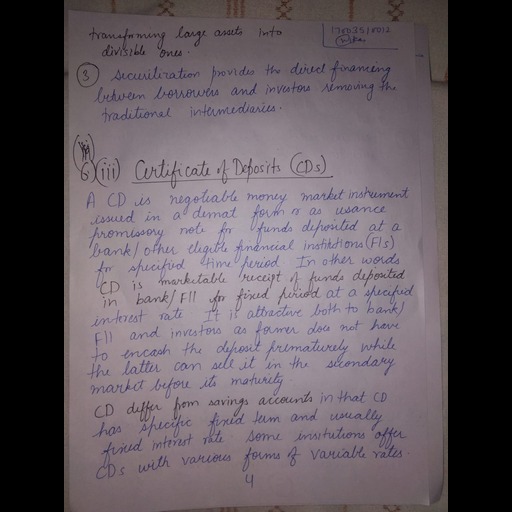 transforming large assets into
divisible ones.
③ Securitization provides the direct financing
between borrowers and investors removing the
traditional intermediaries.
6) (iii) Certificate of Deposits (CDs)
A CD is negotiable money market instrument
issued in a demat form or as usance
promissory note for funds deposited at a
bank/other eligible financial institutions (FIs)
for specified time period. In other words
CD is marketable receipt of funds deposited
in bank/FII for fixed period at a specified
interest rate. It is attractive both to bank/
FII and investors as former does not have
to encash the deposit prematurely while
the latter can sell it in the secondary
market before its maturity
CD differ from savings accounts in that CD
has specific fixed term and usually
fixed interest rate some institutions offer
CDs with various forms of variable rates.
4